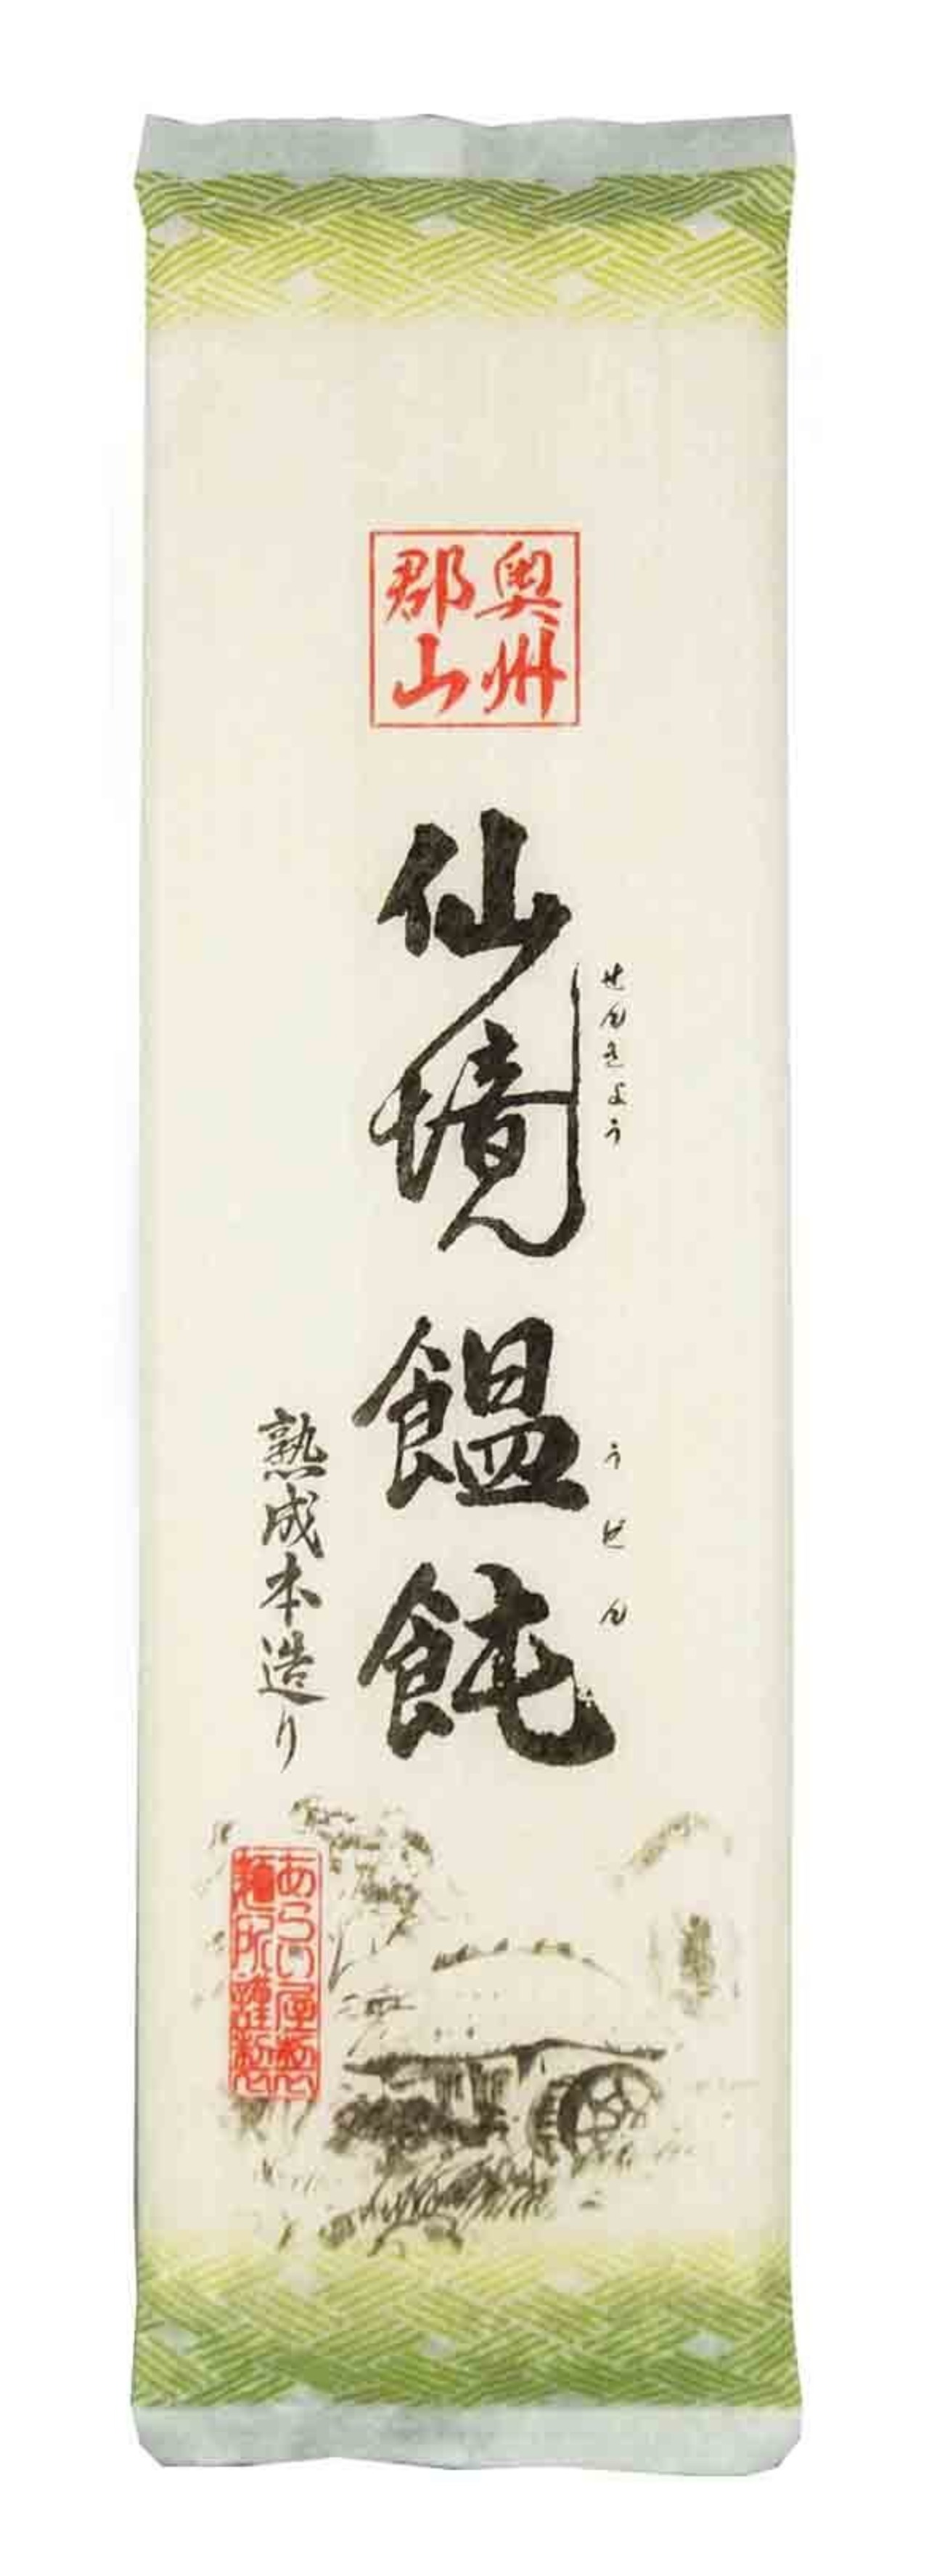 奥州
郡山
せんきょう
仙境
うどん
饂飩
熟成本造り
あらい屋製
麺所謹製